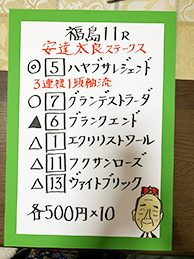 福島11R
安達太良ステークス
◎ 5 ハヤブサレジェンド
3連複1頭軸流
○ 7 グランデストラーダ
▲ 6 ブランクエンド
△ 1 エクリリストワール
△ 11 フクサンローズ
△ 13 ヴァイトブリック
各500円×10